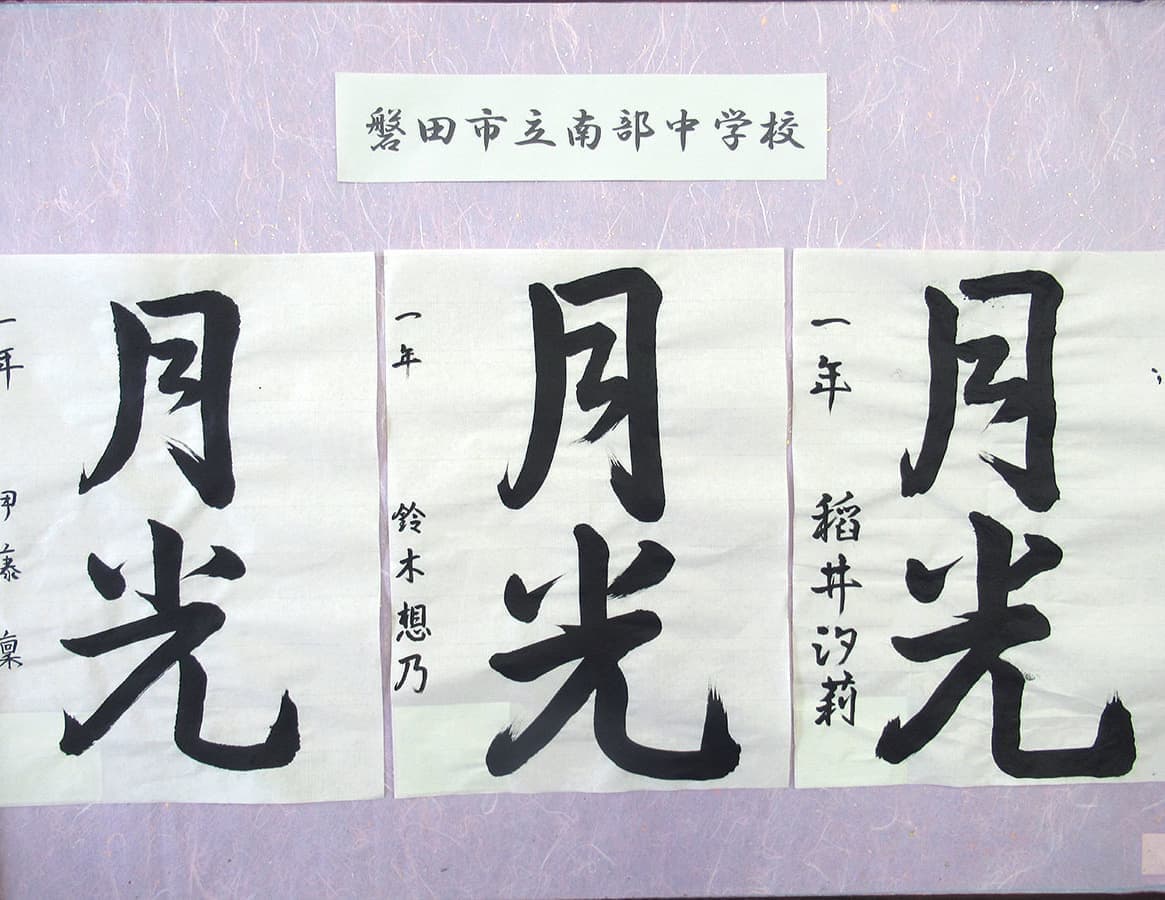 磐田市立南部中学校
月光
一年 稲井汐莉
月光
一年 鈴木想乃
月光
一年 藤 凛